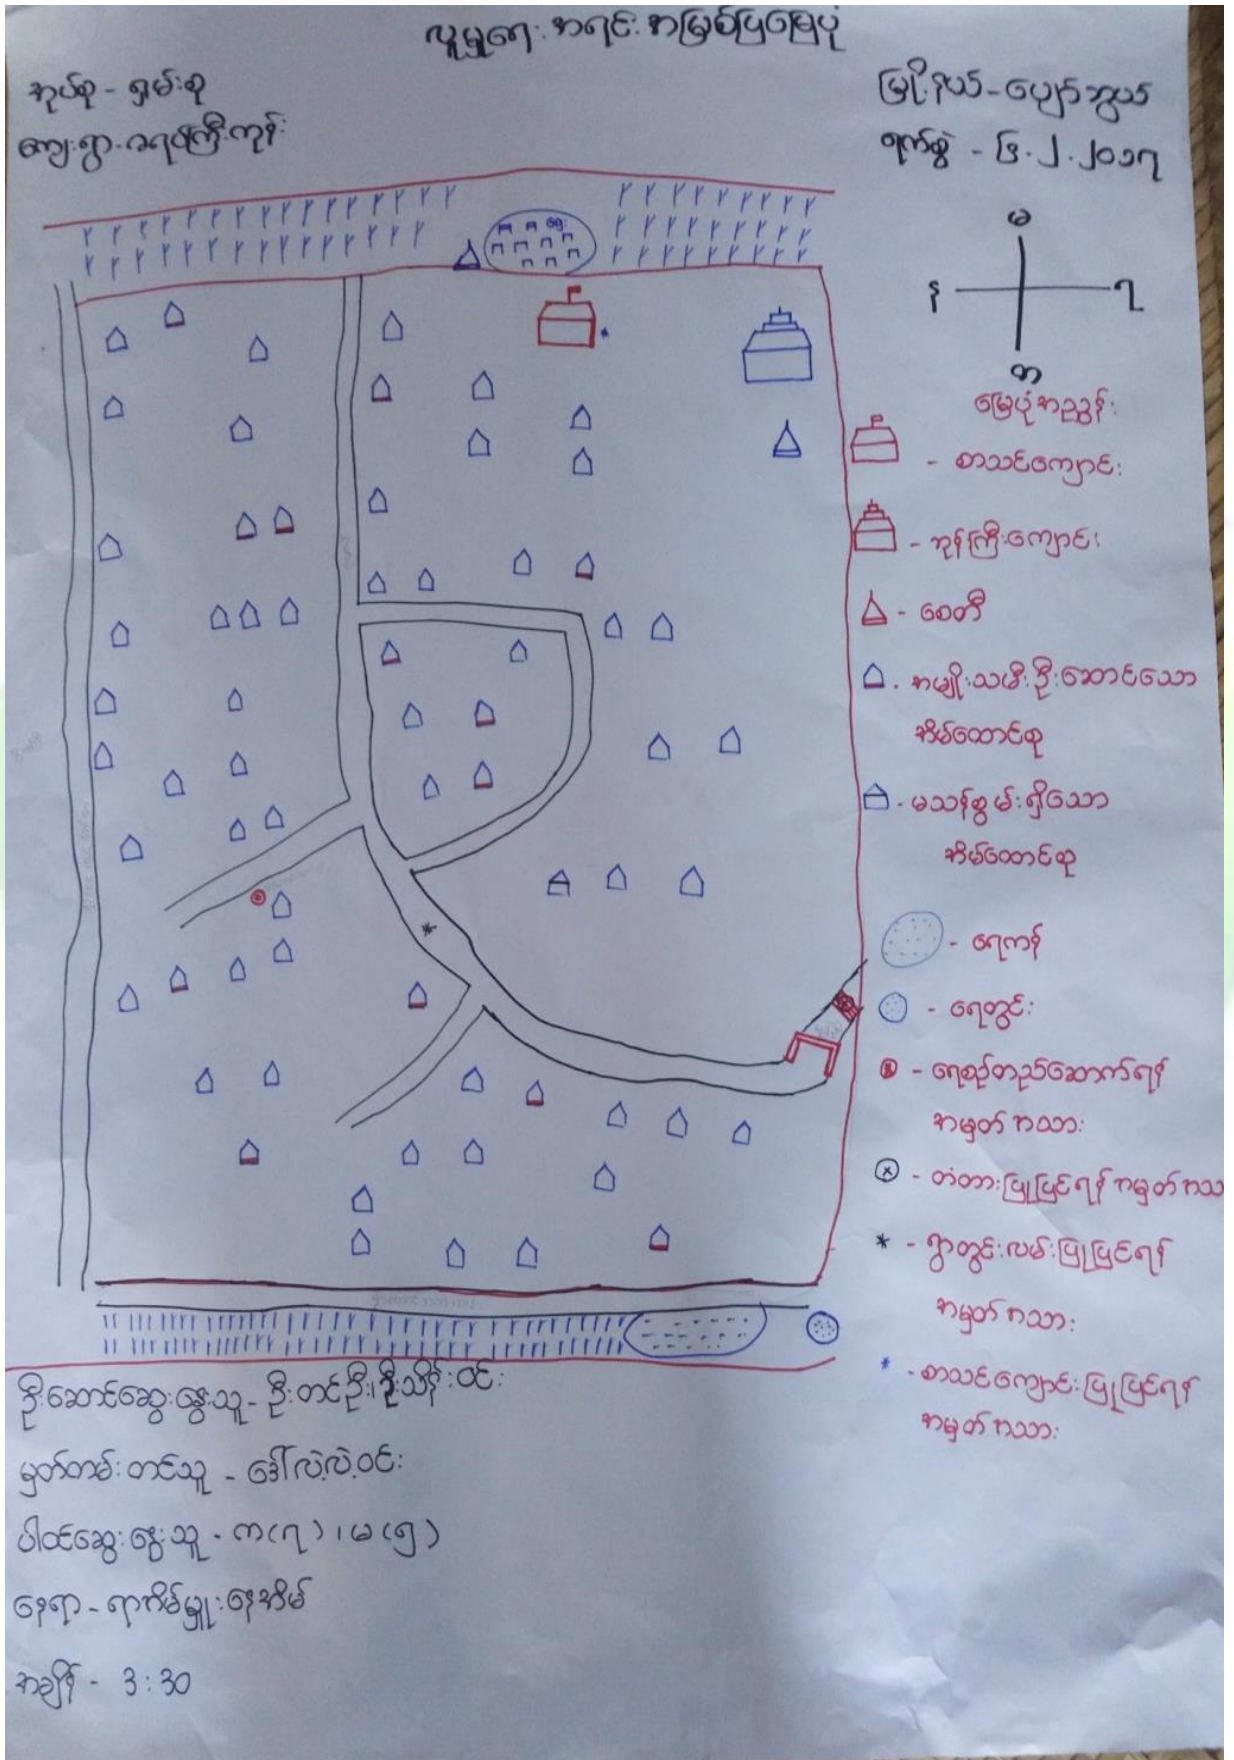 လူမှုရေး အရင်းအမြစ်ပြမြေပုံ
အုပ်စု - ရှမ်းစု
မြို့နယ် - ပျော်ဘွယ်
ကျေးရွာ - ရေကြီးကုန်း
ရက်စွဲ - ၆.၂.၂၀၁၇
မ
န
ရ
တ
မြေပုံအညွှန်း
- စာသင်ကျောင်း
- ဘုန်ကြီးကျောင်း
- စေတီ
- အမျိုးသမီးဦးဆောင်သော
အိမ်ထောင်စု
- မသန်စွမ်းရှိသော
အိမ်ထောင်စု
- ရေကန်
- ရေတွင်း
- ရေစဉ်တည်ဆောက်ရန်
အမှတ်အသား
- တံတားပြုပြင်ရန်အမှတ်အသ
- ရွာတွင်းလမ်းပြုပြင်ရန်
အမှတ်အသား
- စာသင်ကျောင်းပြုပြင်ရန်
အမှတ်အသား
ဦးဆောင်ဆွေးနွေးသူ - ဦးတင်ဦး၊ ဦးသိန်းဝင်း
မှတ်တမ်းတင်သူ - ဒေါ်လဲ့လဲ့ဝင်း
ပါဝင်ဆွေးနွေးသူ - က(၇)၊ မ(၅)
နေရာ - ရာအိမ်မှူးနေအိမ်
အချိန် - 3:30